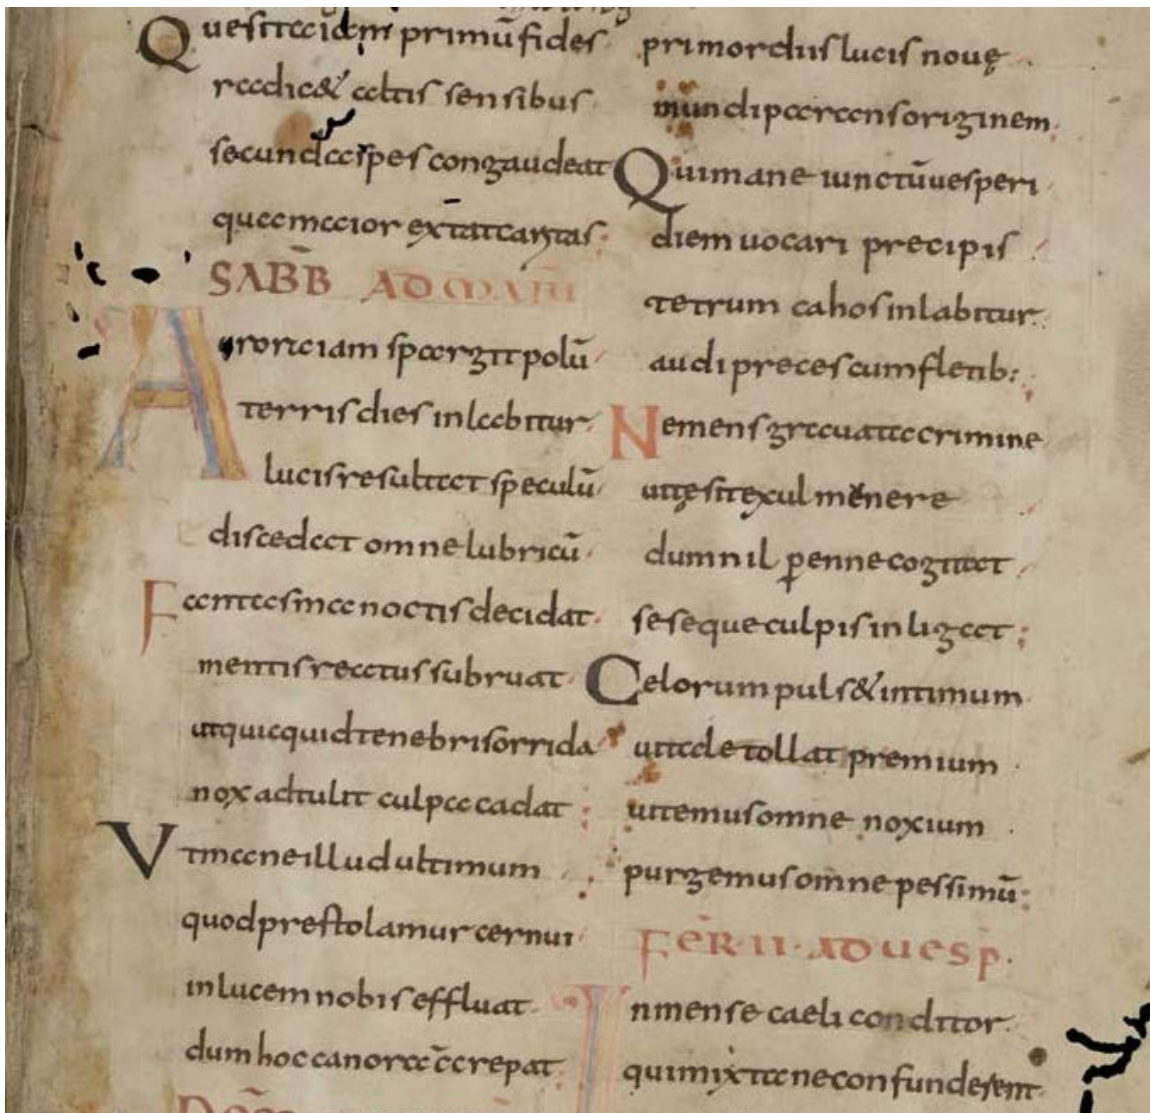 Quesita iam primū fides
radic& altis sensibus
secunda spes congaudeat
qua maior extat caritas
SABB AD MATU
Aurora iam spargit polū
terris dies inlabitur
lucis resultat speculū
discedat omne lubricū
Fantasma noctis decidat
mentis reatus subruat
utquicquid tenebris orrida
nox adtulit culpae cadat
Vt mane illud ultimum
quod prestolamur cernui
in lucem nobis effluat
dum hoc canore c̄crepat
primordiis lucis nouę
mundi parans originem
Qui mane iunctū uesperi
diem uocari precipis
tetrum cahos inlabitur
audi preces cum fletib:
Ne mens grauata crimine
uitę sit exul munere
dum nil perenne cogitat
seseque culpis inligat
Celorum puls& intimum
uitale tollat premium
uitemus omne noxium
purgemus omne pessimū
FER II AD UESP
Inmense caeli conditor
qui mixta ne confunderent